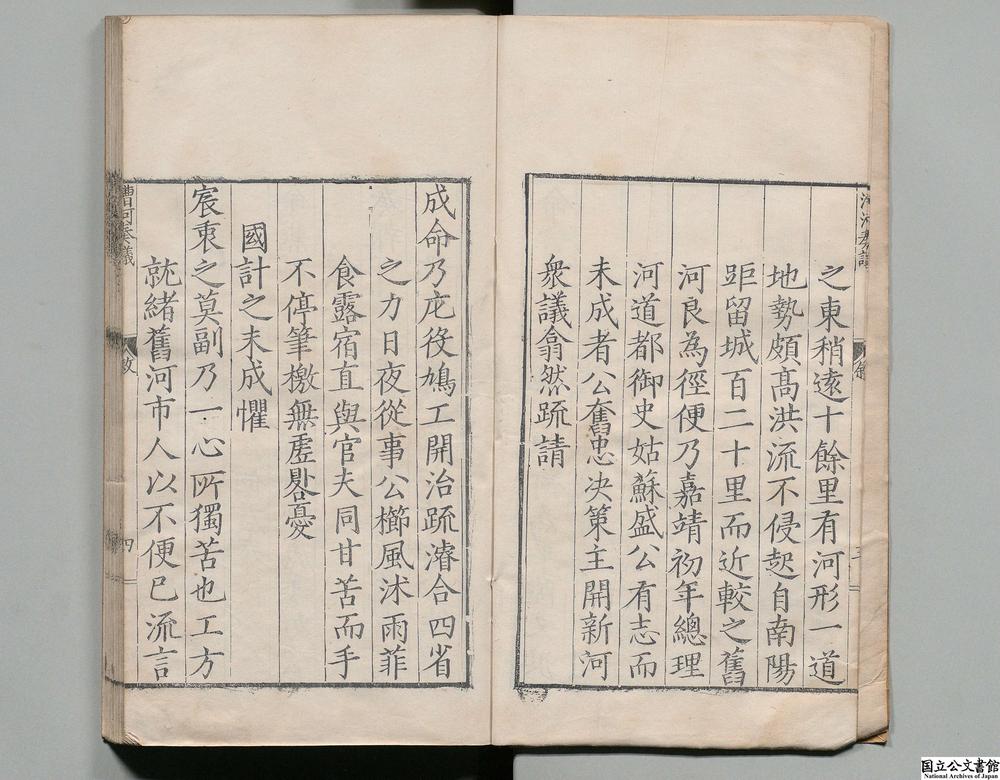 之東稍遠十餘里有河形一道
地勢頗高洪流不侵起自南陽
距留城百二十里而近較之舊
河良為徑便乃嘉靖初年總理
河道都御史姑蘇盛公有志而
未成者公奮忠决策主開新河
衆議翕然疏請
成命乃庀役鳩工開治疏濬合四省
之力日夜從事公櫛風沐雨菲
食露宿直與官夫同甘苦而手
不停筆檄無虛晷憂
國計之未成懼
宸衷之莫副乃一心所獨苦也工方
就緒舊河市人以不便已流言
漕河奏議
四
国立公文書館
National Archives of Japan